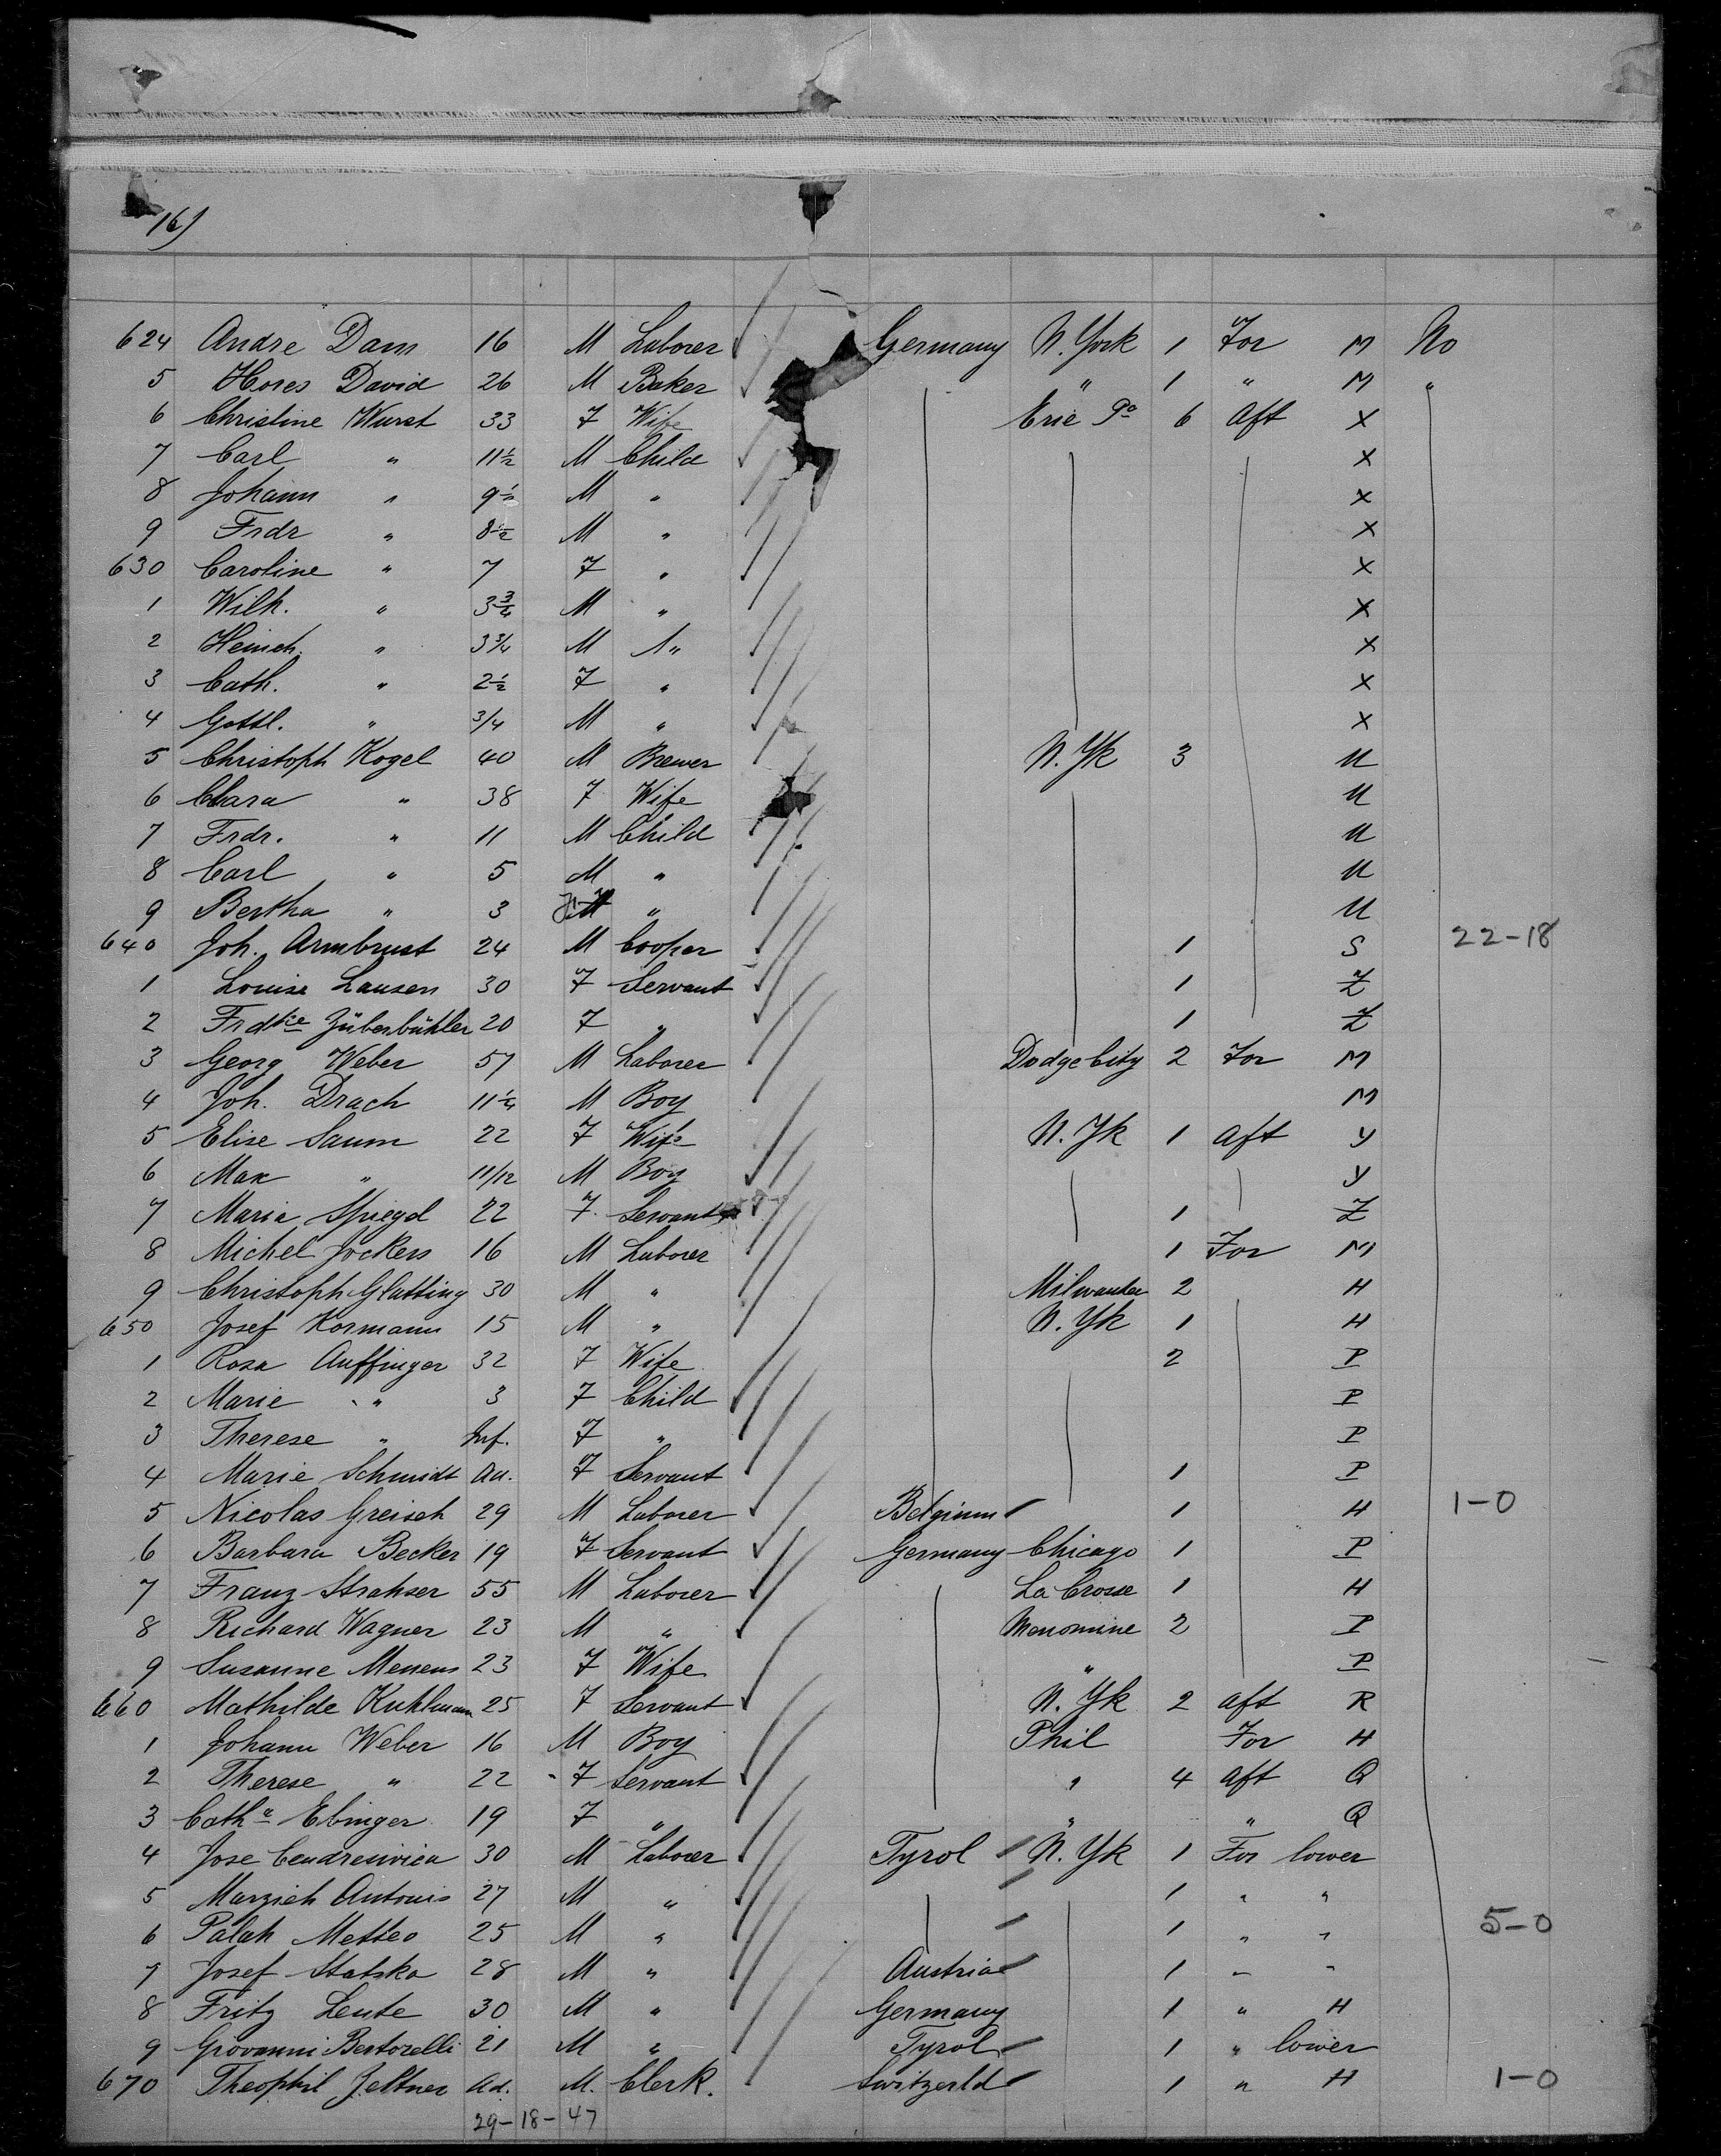 16)
624 Andre Dam 16 M Laborer Germany N. York 1 For M No
5 Hores David 26 M Baker " 1 " M "
6 Christine Wurst 33 F Wife Erie Pa 6 Aft X
7 Carl " 11½ M Child X
8 Johann " 9½ M " X
9 Frdr " 8½ M " X
630 Caroline " 7 F " X
1 Wilh. " 3¾ M " X
2 Heinch. " 3¾ M " X
3 Cath. " 2½ F " X
4 Gottl. " 3/4 M " X
5 Christoph Kogel 40 M Brewer N. Yk 3 U
6 Clara " 38 F Wife U
7 Frdr. " 11 M Child U
8 Carl " 5 M " U
9 Bertha " 3 F " U
640 Joh. Armbrust 24 M Cooper 1 S 22-18
1 Louise Lausen 30 F Servant 1 Z
2 Frdke Züberbühler 20 F " 1 Z
3 Georg Weber 57 M Laborer Dodge City 2 For M
4 Joh. Drach 11¼ M Boy M
5 Elise Saum 22 F Wife N. Yk 1 Aft Y
6 Max " 11/12 M Boy Y
7 Maria Spiegel 22 F Servant 1 Z
8 Michel Jockers 16 M Laborer 1 For M
9 Christoph Glatting 30 M " Milwaukee 2 H
650 Josef Kormann 15 M " N. Yk 1 H
1 Rosa Auffinger 32 F Wife 2 P
2 Marie " 3 F Child P
3 Therese " Inf. F " P
4 Marie Schmidt Ad. F Servant 1 P
5 Nicolas Greisch 29 M Laborer Belgium 1 H 1-0
6 Barbara Becker 19 F Servant Germany Chicago 1 P
7 Franz Strahser 55 M Laborer La Crosse 1 H
8 Richard Wagner 23 M " Menomine 2 P
9 Susanne Menens 23 F Wife " P
660 Mathilde Kuhlmann 25 F Servant N. Yk 2 aft R
1 Johann Weber 16 M Boy Phil For H
2 Therese " 22 F Servant " 4 aft Q
3 Catha Ebinger 19 F " " " Q
4 Jose 30 M Laborer Tyrol N. Yk 1 For lower
5 Marzich Antonis 27 M " 1 " "
6 Palah Metteo 25 M " 1 " " 5-0
7 Josef Statska 28 M " Austria 1 " "
8 Fritz Leute 30 M " Germany 1 " H
9 Giovanni Bertorelli 21 M " Tyrol 1 " lower
670 Theophil Zeltner Ad. M. Clerk. Switzerld 1 " H 1-0
29-18-47